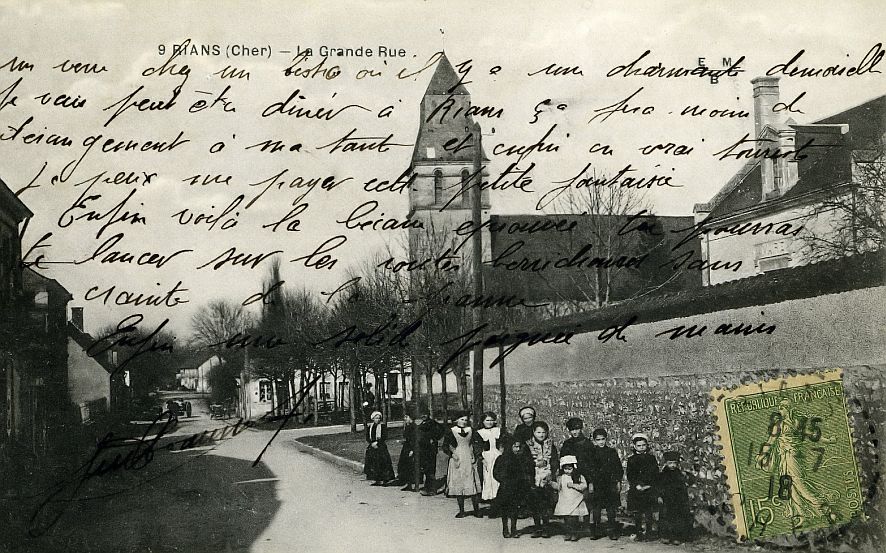 9 RIANS (Cher) — La Grande Rue
E M
B
un verre chez un bistro où il y a une charmante demoiselle
Je vais peut être dîner à Rians ça fera moins de
dérangement à ma tante et enfin en vrai touriste
je peux me payer cette petite fantaisie
Enfin voilà la bécane tu pourras
te lancer sur les routes berrichonnes sans
crainte de la panne
Enfin une solide poignée de main
REPUBLIQUE FRANÇAISE
15c
POSTES
8 45
18